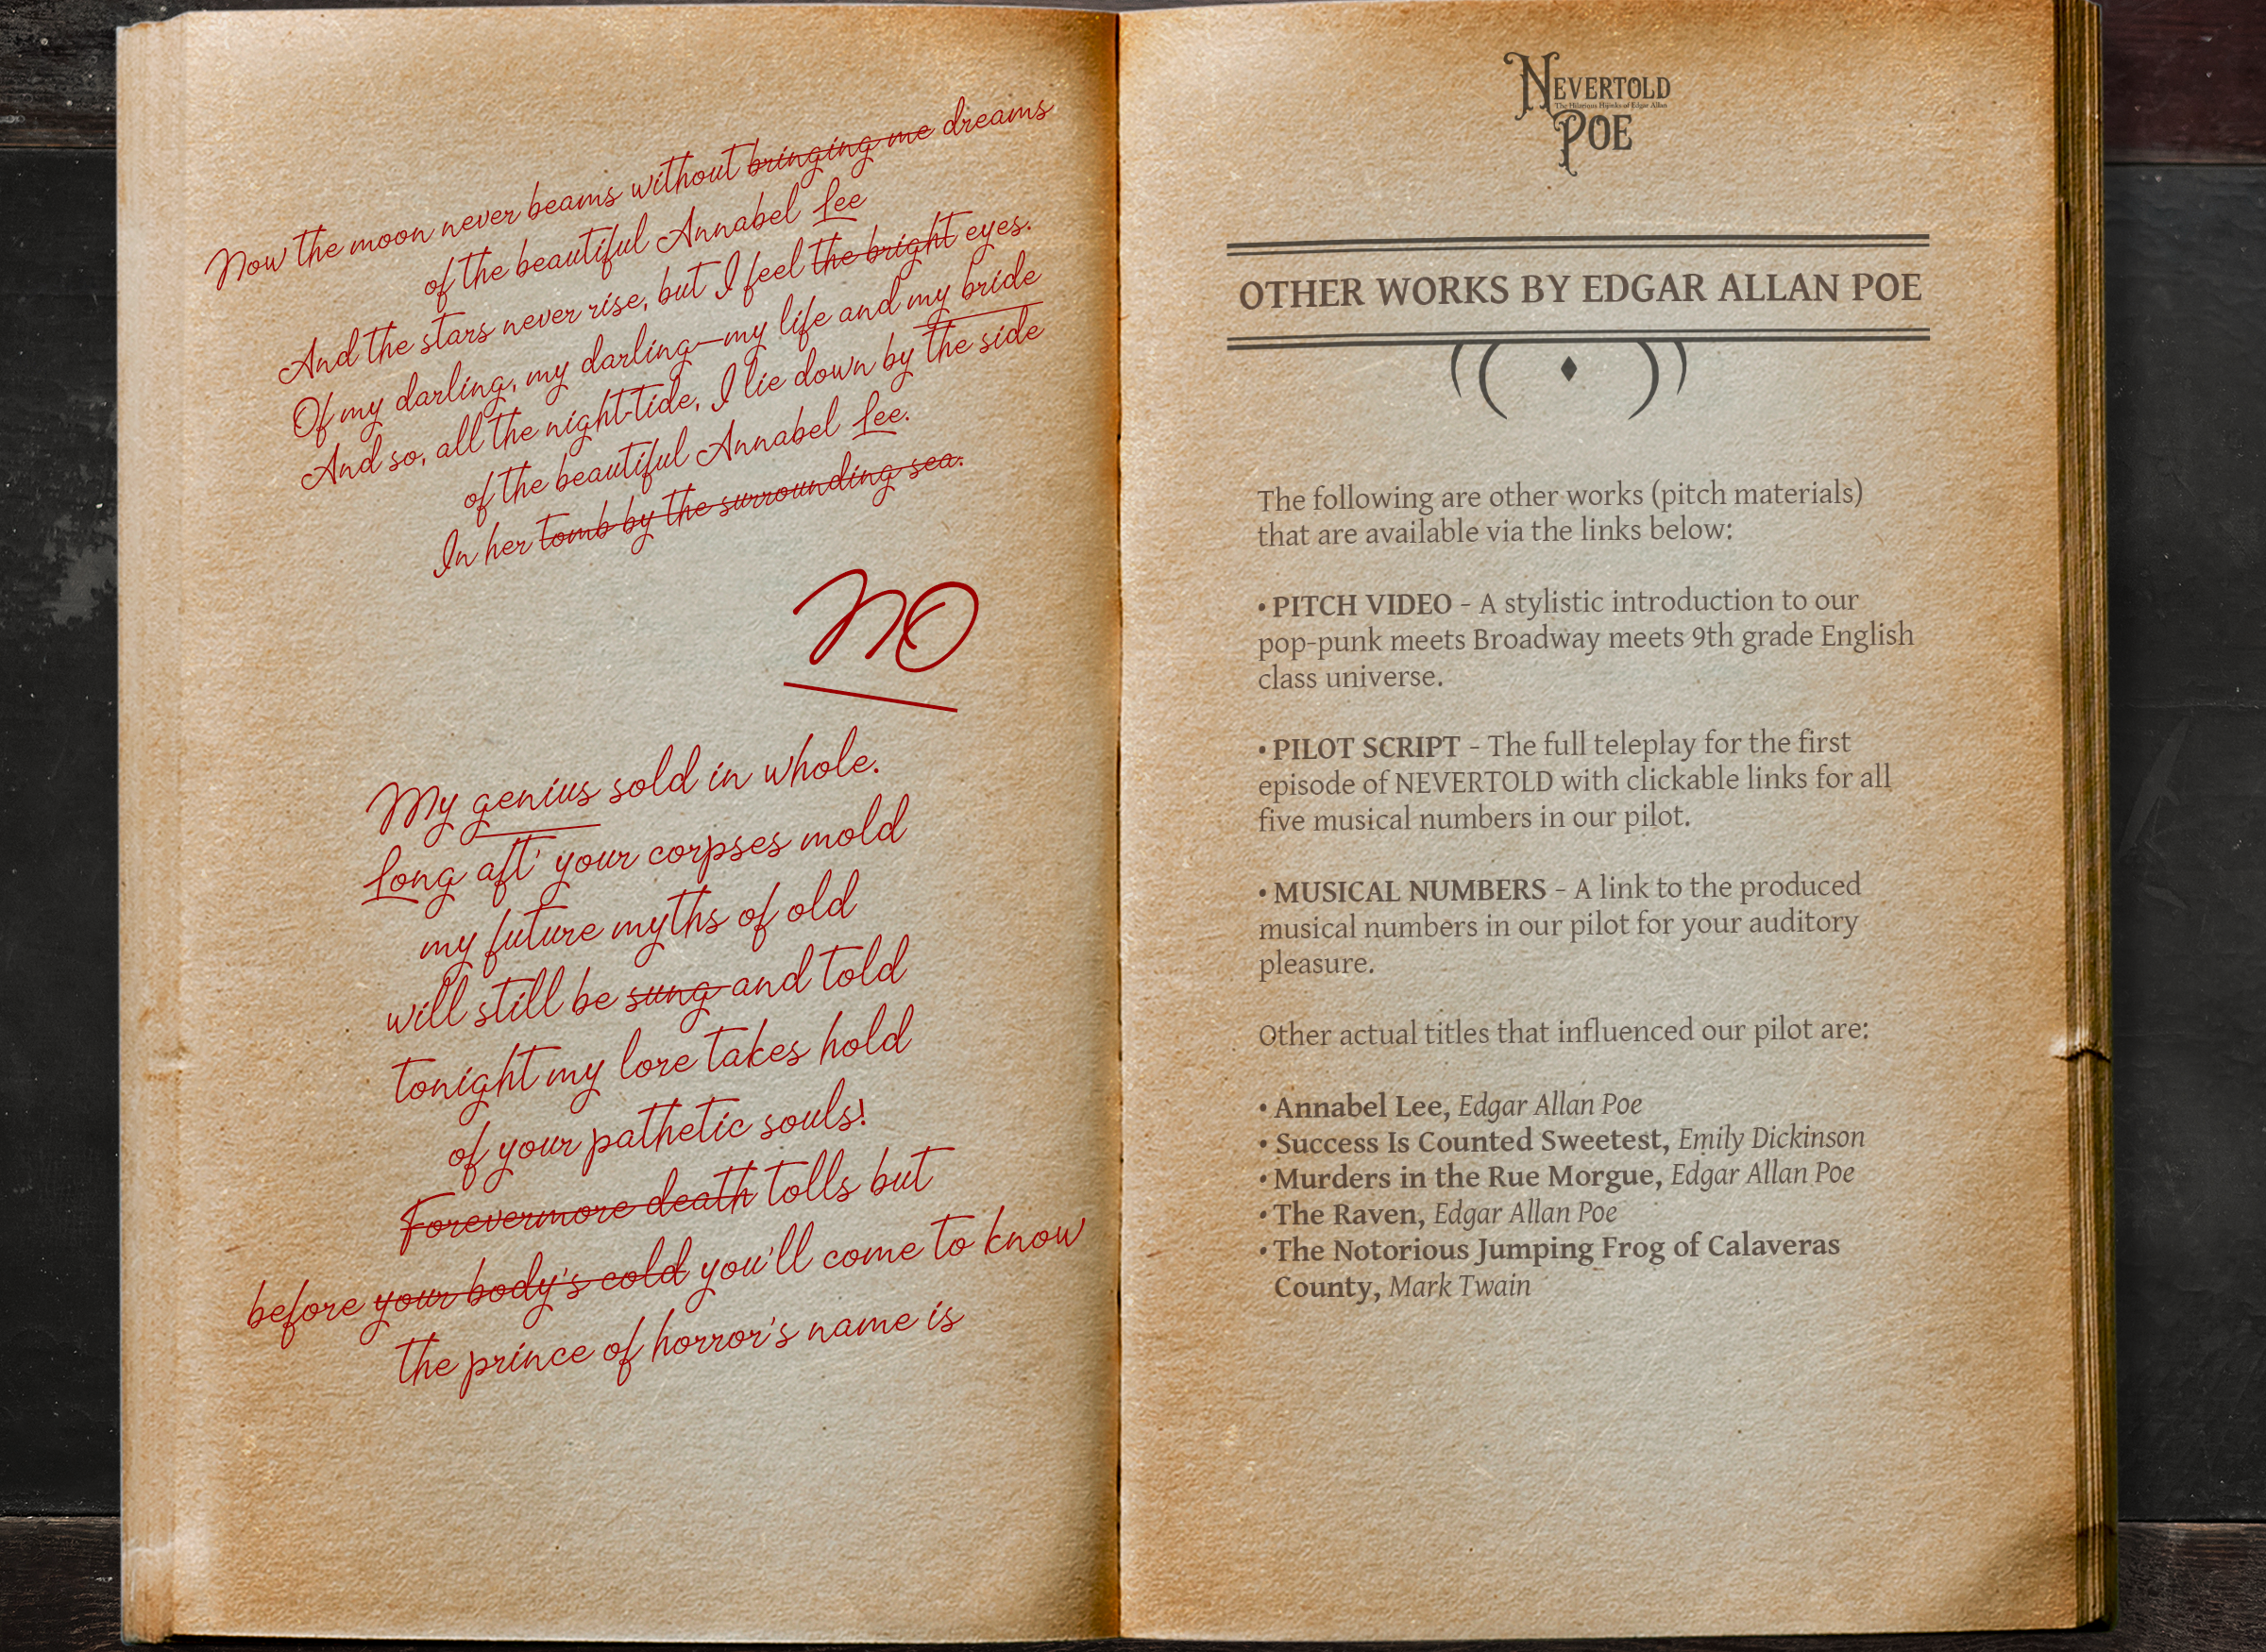 Now the moon never beams without bringing me dreams
of the beautiful Annabel Lee
And the stars never rise, but I feel the bright eyes.
Of my darling, my darling—my life and my bride
And so, all the night-tide, I lie down by the side
of the beautiful Annabel Lee.
In her tomb by the surrounding sea.
NO
My genius sold in whole.
Long aft' your corpses mold
my future myths of old
will still be sung and told
tonight my lore takes hold
of your pathetic souls!
Forevermore death tolls but
before your body's cold you'll come to know
the prince of horror's name is
NEVERTOLD
The Hilarious Hijinks of Edgar Allan
POE
OTHER WORKS BY EDGAR ALLAN POE
The following are other works (pitch materials)
that are available via the links below:
• PITCH VIDEO - A stylistic introduction to our
pop-punk meets Broadway meets 9th grade English
class universe.
• PILOT SCRIPT - The full teleplay for the first
episode of NEVERTOLD with clickable links for all
five musical numbers in our pilot.
• MUSICAL NUMBERS - A link to the produced
musical numbers in our pilot for your auditory
pleasure.
Other actual titles that influenced our pilot are:
• Annabel Lee, Edgar Allan Poe
• Success Is Counted Sweetest, Emily Dickinson
• Murders in the Rue Morgue, Edgar Allan Poe
• The Raven, Edgar Allan Poe
• The Notorious Jumping Frog of Calaveras
County, Mark Twain